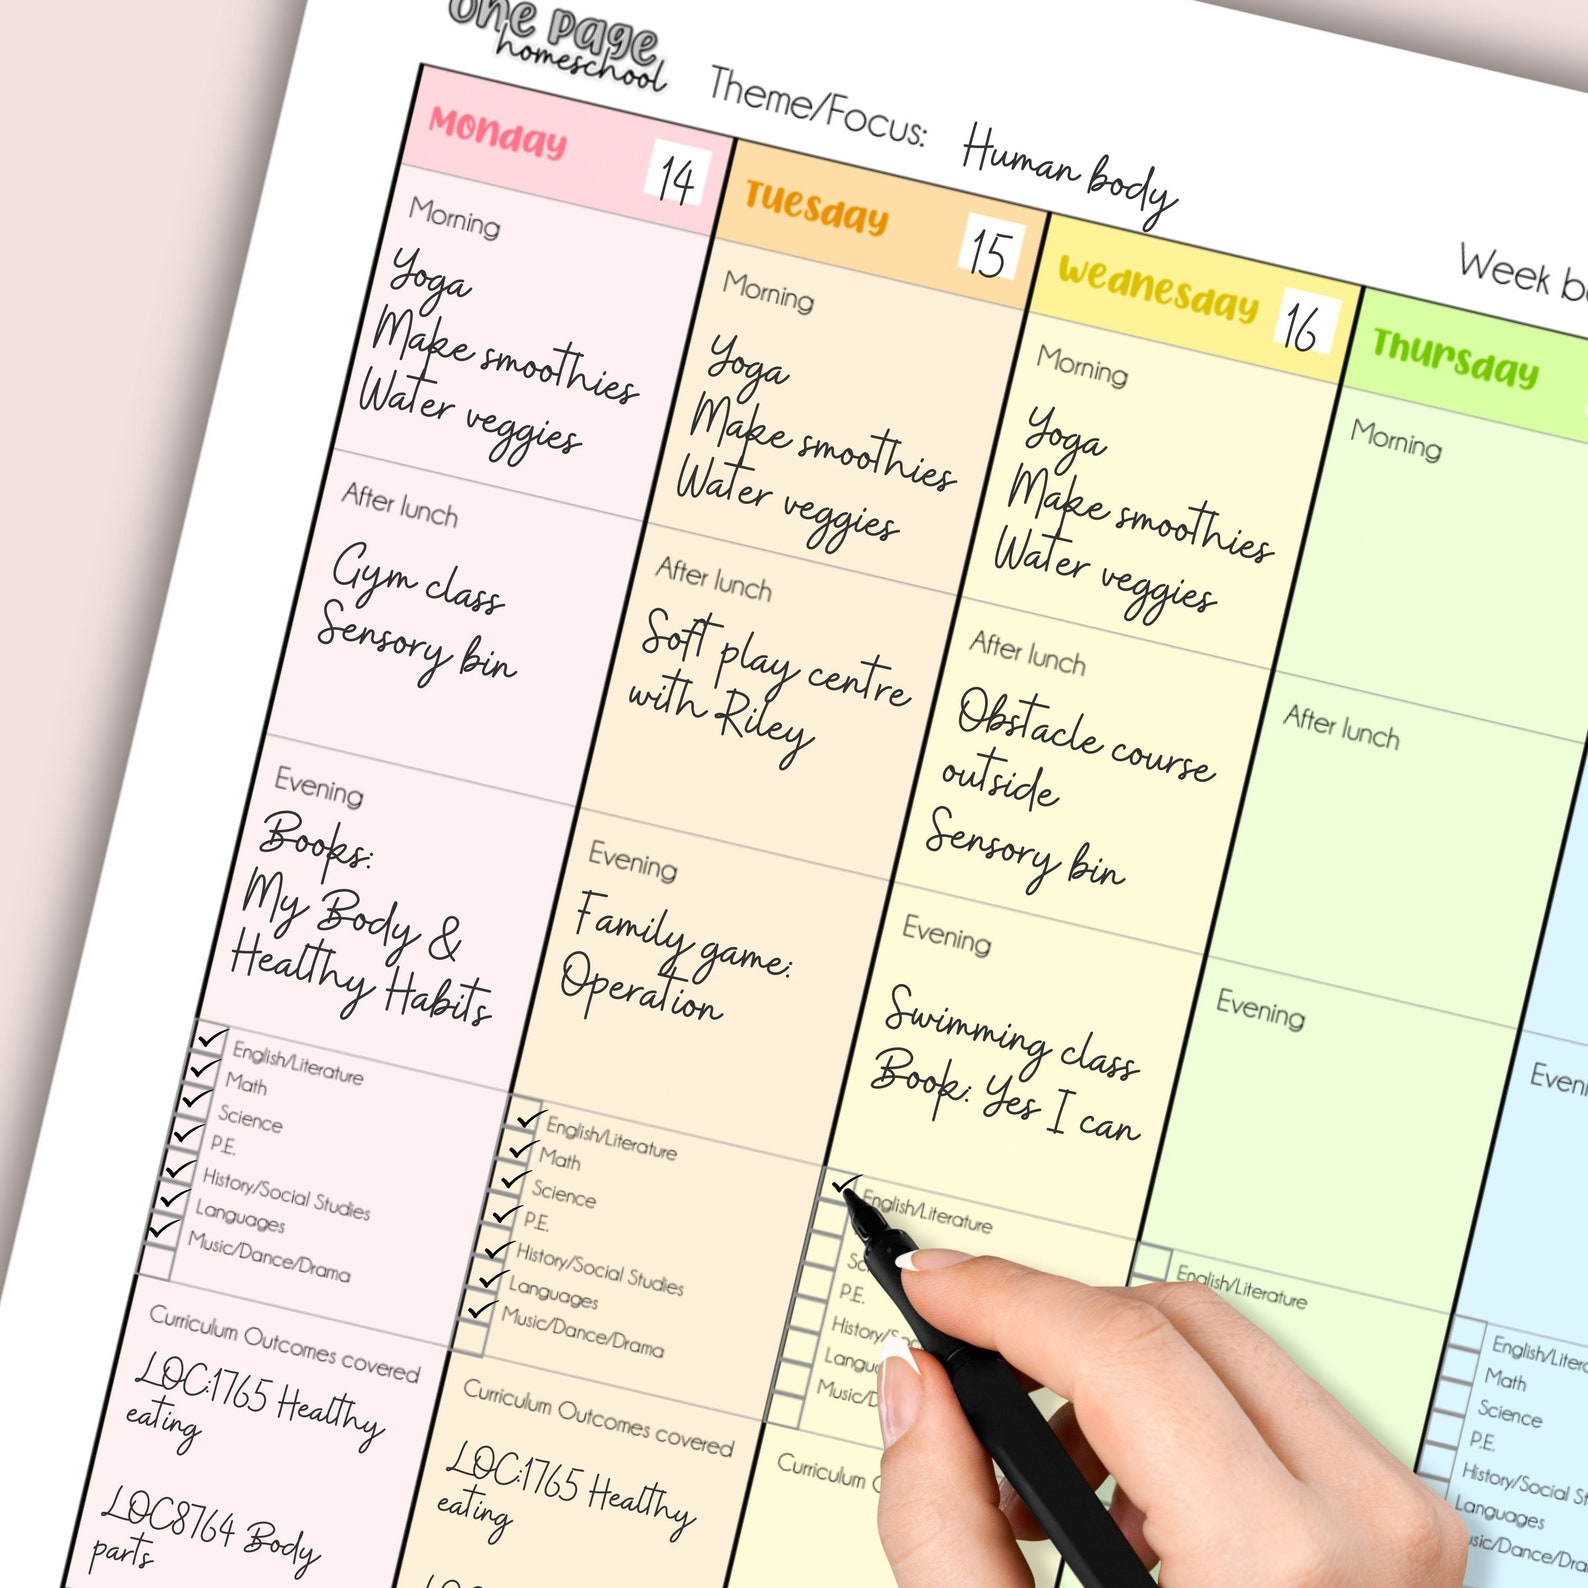 one page
homeschool
Theme/Focus: Human body
Week
Monday 14
Morning
Yoga
Make smoothies
Water veggies
After lunch
Gym class
Sensory bin
Evening
Books:
My Body &
Healthy Habits
✓ English/Literature
✓ Math
✓ Science
✓ P.E.
✓ History/Social Studies
✓ Languages
✓ Music/Dance/Drama
Curriculum Outcomes covered
LOC:1765 Healthy
eating
LOC8764 Body
parts
Tuesday 15
Morning
Yoga
Make smoothies
Water veggies
After lunch
Soft play centre
with Riley
Evening
Family game:
Operation
✓ English/Literature
✓ Math
✓ Science
✓ P.E.
✓ History/Social Studies
✓ Languages
✓ Music/Dance/Drama
Curriculum Outcomes covered
LOC:1765 Healthy
eating
Wednesday 16
Morning
Yoga
Make smoothies
Water veggies
After lunch
Obstacle course
outside
Sensory bin
Evening
Swimming class
Book: Yes I can
✓ English/Literature
P.E.
Curriculum
Thursday
Morning
After lunch
Evening
English/Literature
Math
Science
P.E.
History/Social
Languages